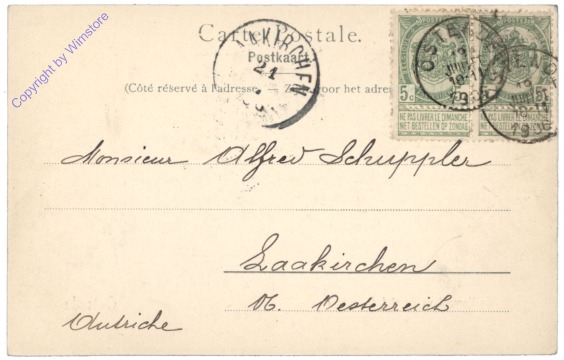 Copyright by Wimstore
Carte Postale.
Postkaart
(Côté réservé à l'adresse voor het adres
5c
5c
NE PAS LIVRER LE DIMANCHE
NIET BESTELLEN OP ZONDAG
NE PAS LIVRER LE DIMANCHE
NIET BESTELLEN OP ZONDAG
Monsieur Alfred Schuppler
Laakirchen
Ob. Oesterreich
Autriche